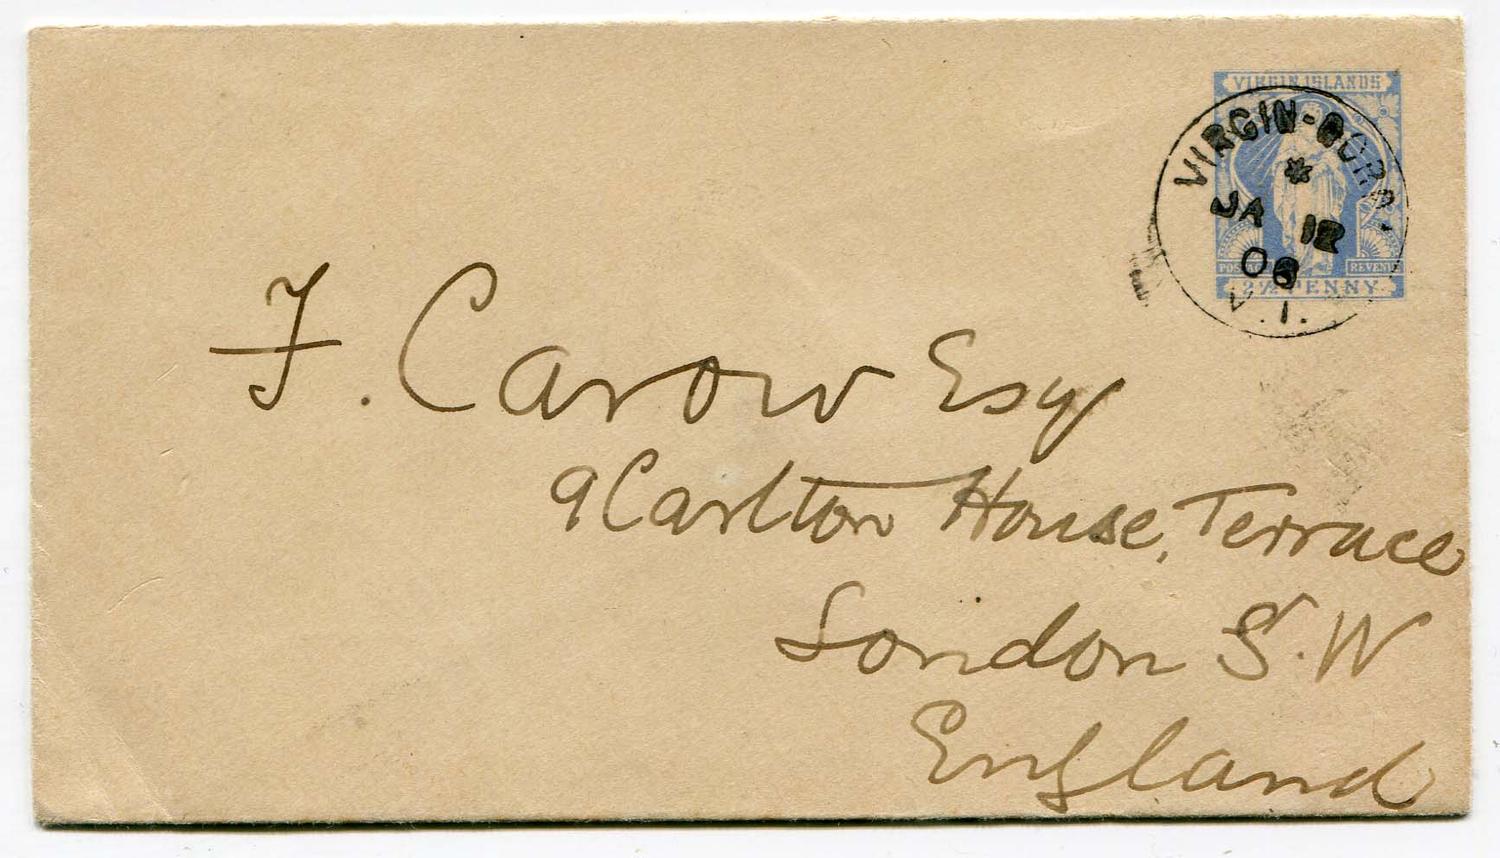 VIRGIN ISLANDS
VIRGIN-GORDA
*
JA 12
06
V.I.
POSTAGE REVENUE
2½ PENNY
F. Carow Esq
9 Carlton House, Terrace
London S.W
England